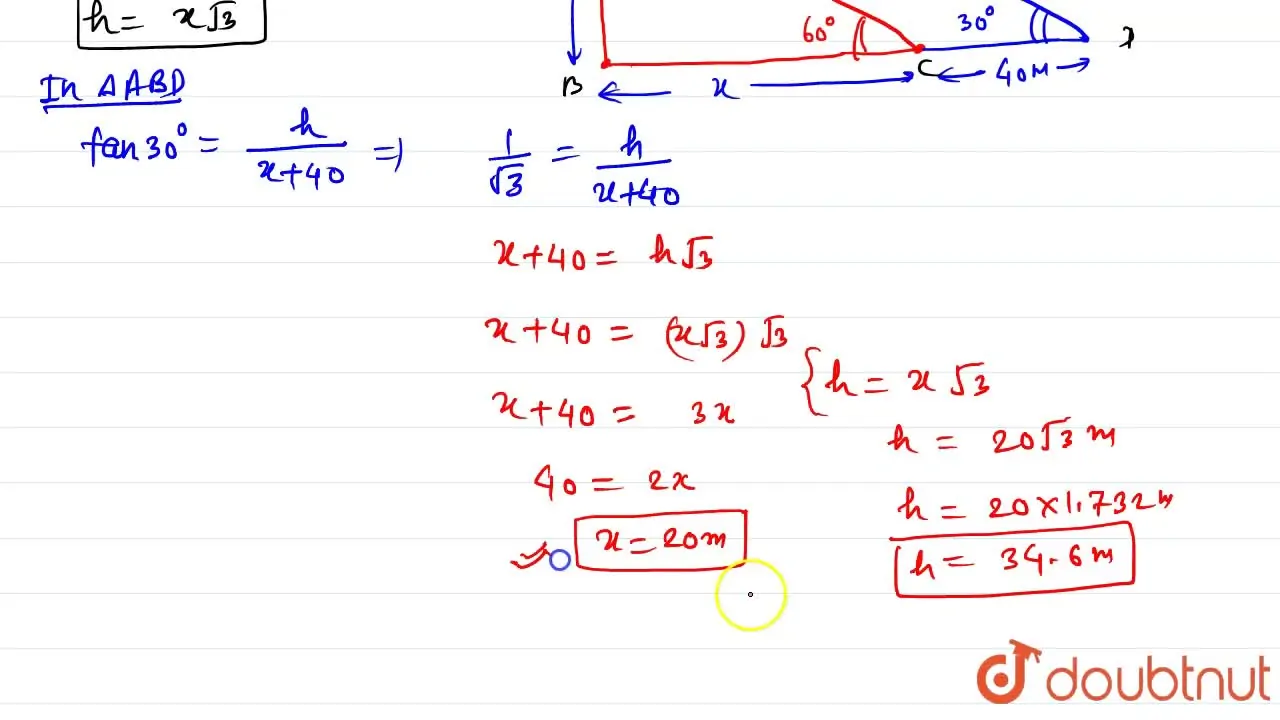 h = x√3
60°
30°
B
x
C
40M
In △ABD
tan30° = h/x+40 ⇒ 1/√3 = h/x+40
x+40 = h√3
x+40 = (x√3) √3
{h = x √3
x+40 = 3x
h = 20√3 m
40 = 2x
h = 20×1.732
x = 20m
h = 34.6m
doubtnut